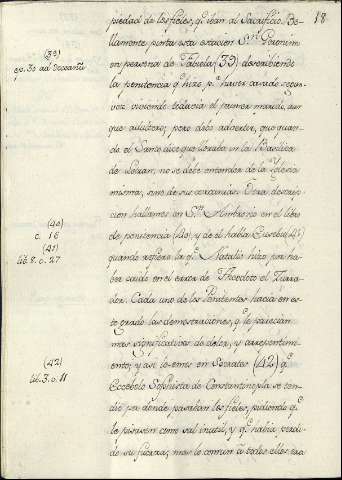 18
piedad de los fieles, q.e iban al Sacrificio. Be-
llamente pinta esta estacion S.n Geronim
en persona de Fabiola (39) describiendo
la penitencia q.e hizo p.r haver casado segun
vez viviendo todavia el primer marido, aun
que adultero; pero debo advertir, que quan-
do el Santo dice que estuvo en la Basilica
de Letran, no se debe entender de la Yglesia
misma, sino de sus cercanias. Otra descrip-
cion hallamos en S.n Ambrosio en el libro
de penitencia (40) y de él habla Eusebio (41)
quando refiere la q.e Natalis hizo por ha
ber caido en el error de Theodoto el Zurra
dor. Cada uno de los Penitentes hacia en es
te grado las demostraciones, q.e le parecian
mas significativas de dolor, y arrepentim
iento, y asi leemos en Socrates (42) q.e
Ecebolo Sofista de Constantinopla se ten
dió por donde pasaban los fieles, pidiendo q.e
le pisasen como sal inutil, y q.e habia perdi
do su fuerza; mas lo comun á todos ellos era
(39)
ep. 30 ad Oceanũ
(40)
c. 16
(41)
lib. 8. c. 27
(42)
lib. 3. c. 11